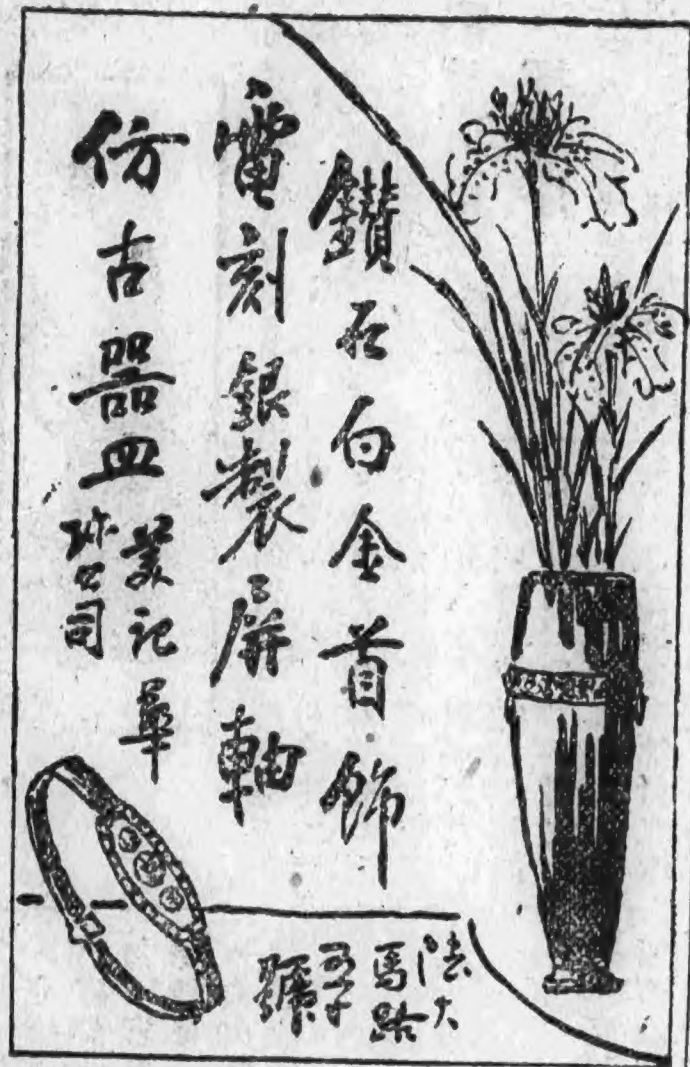 鑽石白金首飾
電刻銀製屏軸
仿古器皿
美記華
珎公司
法大
馬路
號